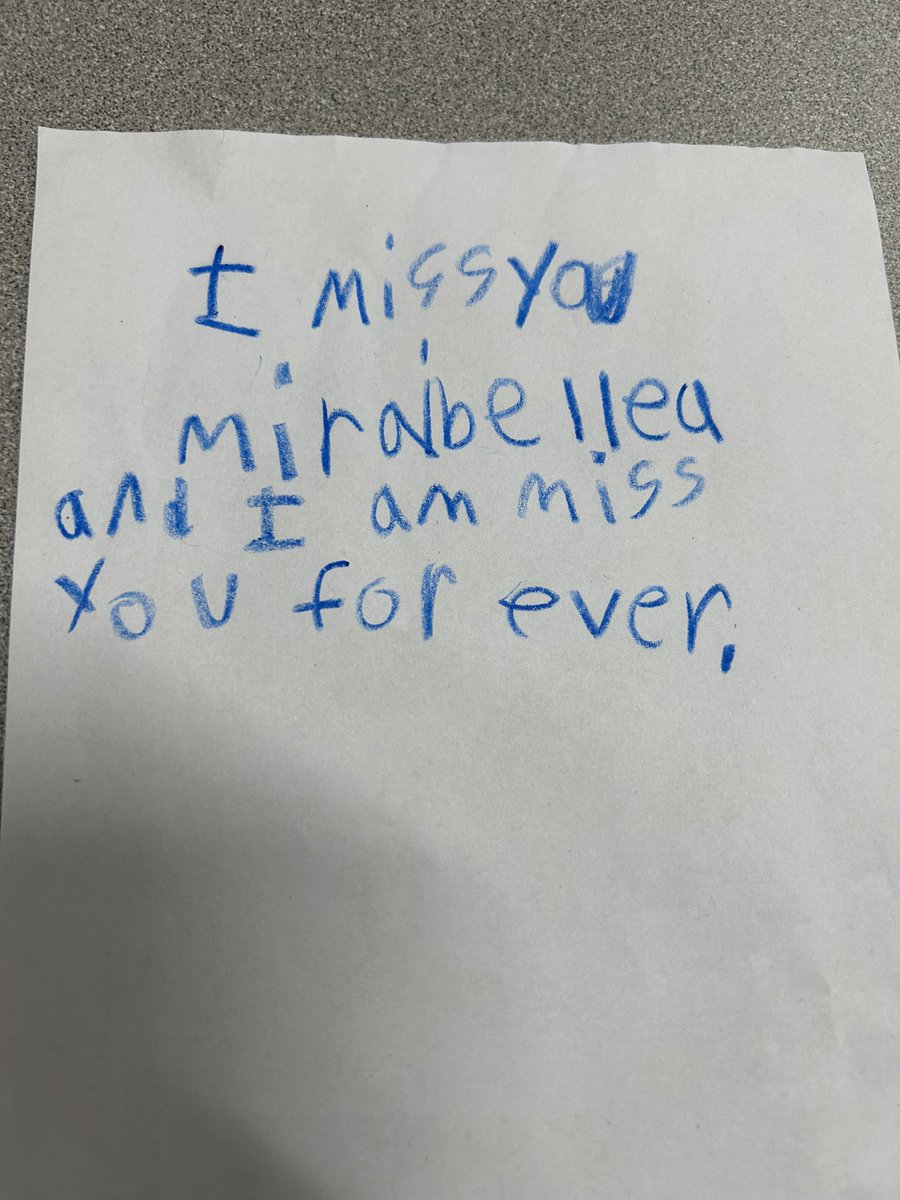 I miss you
miraibellea
and I am miss
you for ever.